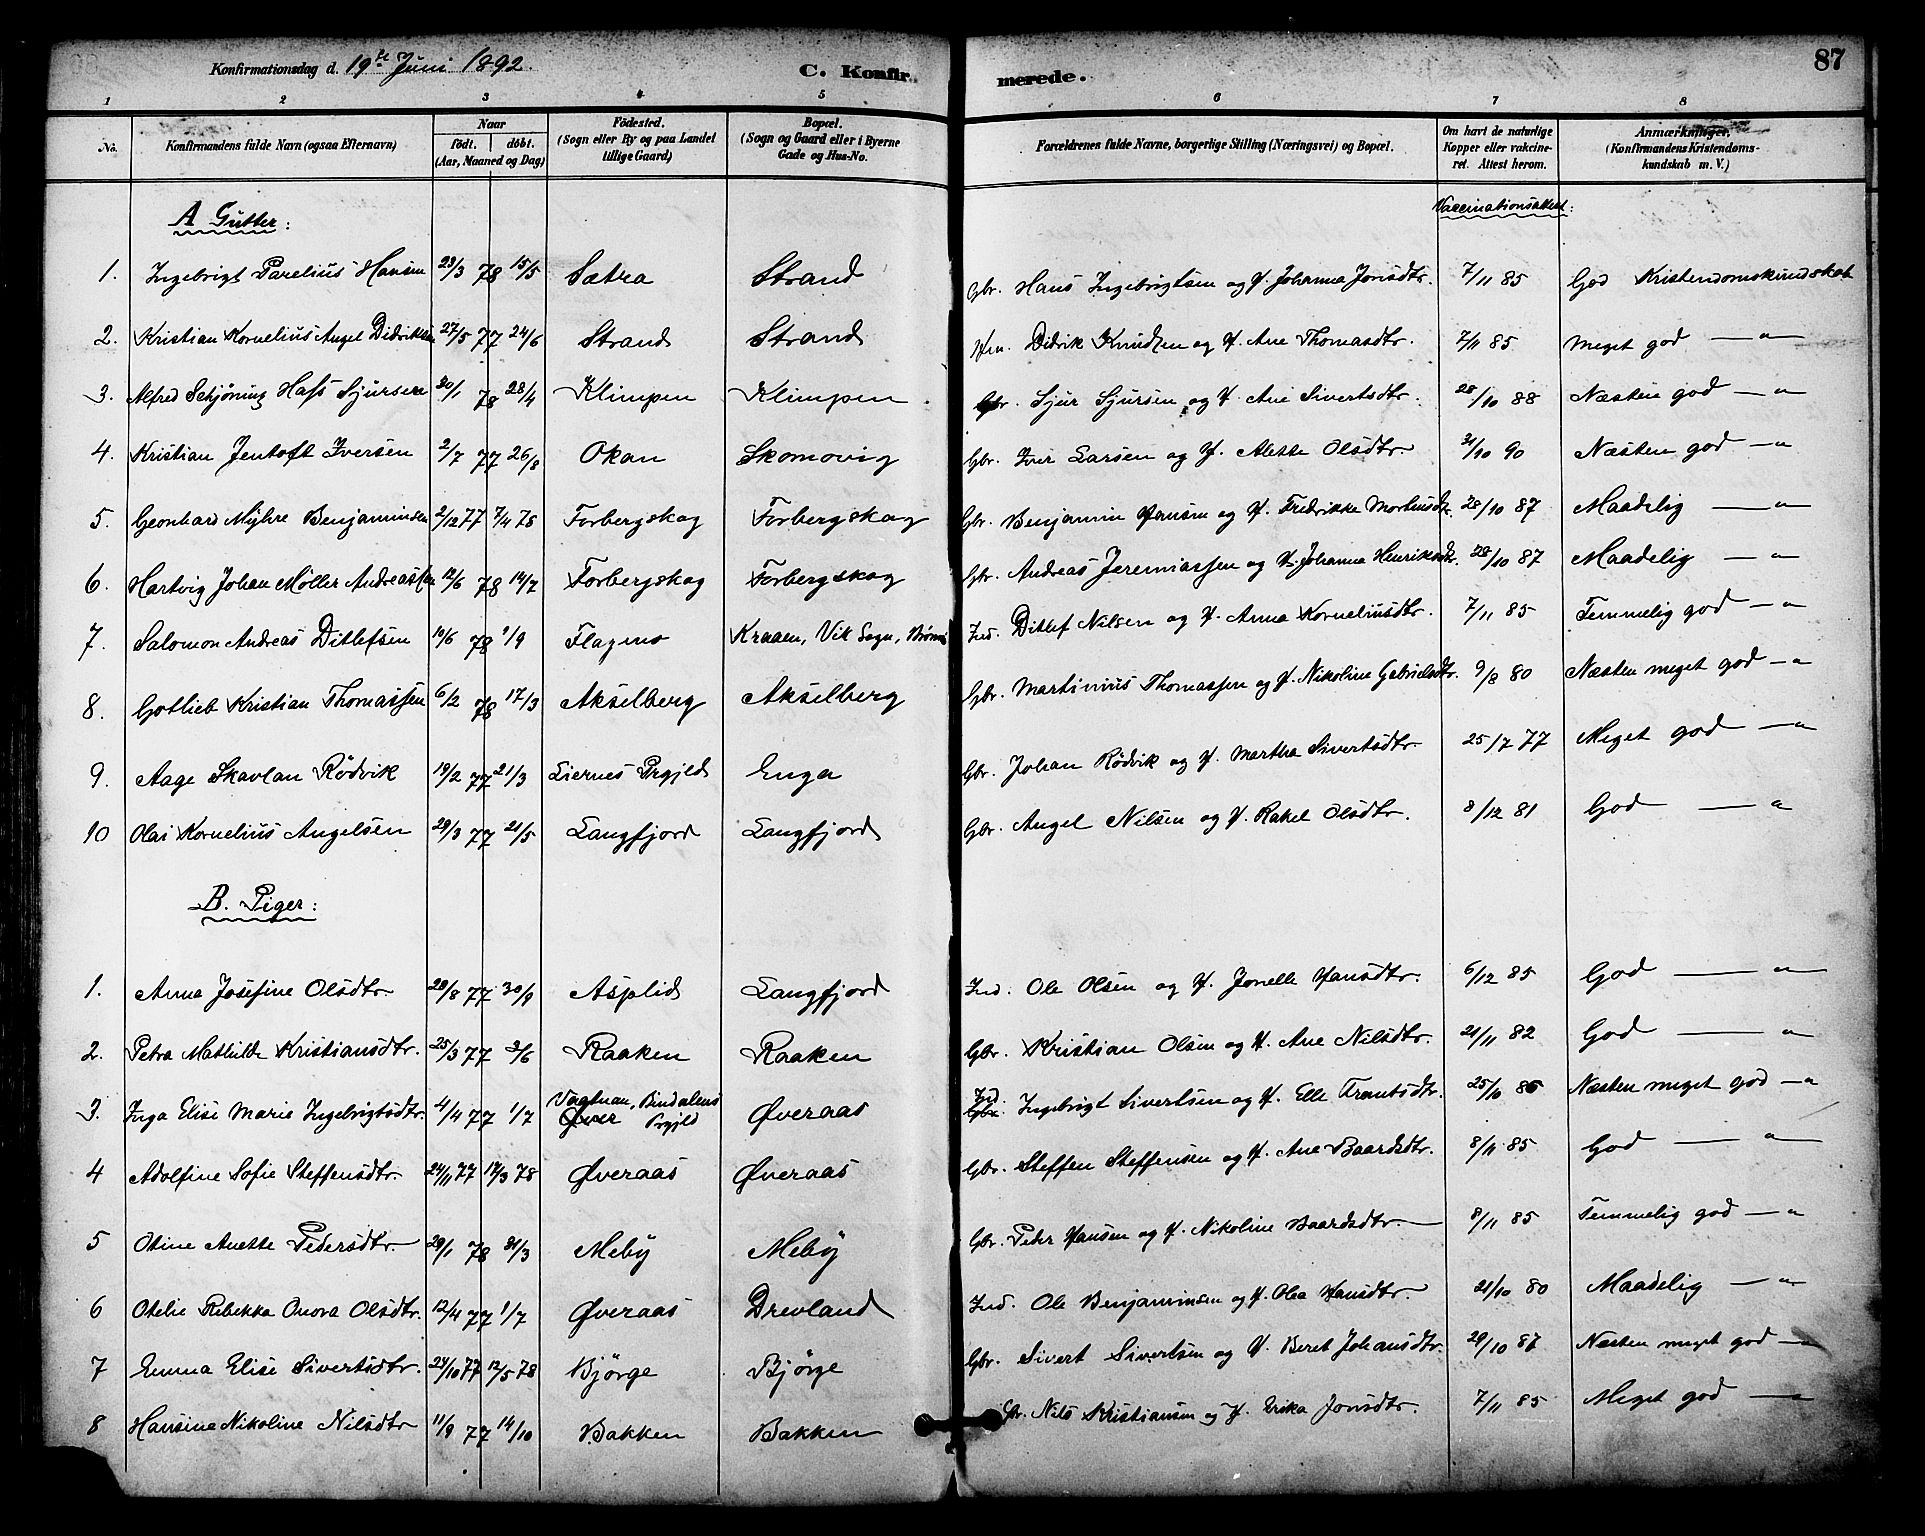 Konfirmationsdag d. 19de Juni 1892. C. Konfirmerede. 87
1 2 3 4 5 6 7 8
No. Konfirmandens fulde Navn (ogsaa Efternavn) Naar født. døbt. (Aar, Maaned og Dag) Fødested. (Sogn eller By og paa Landet tillige Gaard) Bopæl. (Sogn og Gaard eller i Byerne Gade og Hus-No. Forældrenes fulde Navne, borgerlige Stilling (Næringsvei) og Bopæl. Om havt de naturlige Kopper eller vakcineret. Attest herom. Anmærkninger. (Konfirmandens Kristendomskundskab m. V.)
A Gutter: Vaccinationsattest:
1. Ingebrigt Parelius Hansen 23/3 78 15/5 Sætra Strand Gbr. Hans Ingebrigtsen og H. Johanna Jonsdtr. 7/11 85 God Kristendomskundskab
2. Kristian Kornelius Angel Didriksen 27/5 77 24/6 Strand Strand Didrik Knudsen og H. Ane Thomasdtr. 7/11 85 meget god — " —
3. Alfred Schjøning Hass Sjursen 30/1 78 28/4 Klimpen Klimpen. Gbr. Sjur Sjursen og H. Ane Sivertsdtr. 28/10 88 Næsten god — "
4. Kristian Jentoft Iversen 2/7 77 26/8 Okan Skomovig Gbr. Iver Larsen og H. Alette Olsdtr. 31/10 90 Næsten god — "
5. Geonhard Myhre Benjaminsen 2/12 77 7/4 78 Forbergskog Forbergskog Gbr. Benjamin Hansen og H. Fredrikke Mortensdtr. 28/10 87 Maadelig — "
6. Hartvig Johan Møller Andreassen 12/6 78 14/7 Forbergskog Forbergskog Gbr. Andreas Jeremiassen og H. Johanna Henriksdtr. 28/10 87 Maadelig — "
7. Salomon Andreas Ditlefsen 10/6 78 1/9 Flagmo Kraaen, Vik Sogn, Brønnø Ind. Ditlef Nilsen og H. Anna Korneliusdtr. 7/11 85 Temmelig god — "
8. Gotlieb Kristian Thomassen 6/2 78 17/3 Akselberg Akselberg Gbr. Martinius Thomassen og H. Nikoline Gabrielsdtr. 9/8 80 Næsten meget god — "
9. Aage Skavlan Rødvik 19/2 77 21/3 Liernes Prgjeld Enga Gbr. Johan Rødvik og H. Martha Sivertsdtr. 25/7 77 Meget god — "
10 Olai Kornelius Angelsen 29/3 77 21/5 Langfjord Langfjord Gbr. Angel Nilsen og H. Rakel Olsdtr. 8/12 81 God — "
B. Piger:
1. Anna Josefine Olsdtr. 29/8 77 30/9 Asplid Langfjord Ind. Ole Olsen og H. Jonelle Hansdtr. 6/12 85 God — "
2. Petra Mathilde Kristiansdtr. 25/3 77 3/6 Raaken Raaken Gbr. Kristian Olsen og H. Ane Nilsdtr. 21/11 82 God — "
3. Inga Elise Marie Ingebrigtsdtr. 4/4 77 1/7 Vagtnan, Bindalens Prgjld Øver Øveraas Ind. Gbr. Ingebrigt Sivertsen og H. Elle Frantsdtr. 25/10 86 Næsten meget god — "
4 Adolfine Sofie Steffensdtr. 24/11 77 17/3 78 Øveraas Øveraas Gbr. Steffen Steffensen og H. Ane Baardsdtr. 8/11 85 God — "
5 Otine Anette Pedersdtr. 29/1 78 31/3 Meby Meby Gbr. Peter Hansen og H. Nikoline Baardsdtr. — 8/11 85 Temmelig god — "
6 Otelie Rebekka Onora Olsdtr. 12/4 77 1/7 Øveraas Drevland Ind. Ole Benjaminsen og H. Olea Hansdtr 21/10 80 Maadelig — "
7 Emma Elise Sivertsdtr. 24/10 77 12/5 78 Bjørge Bjørge Gbr. Sivert Sivertsen og H. Beret Johansdtr. 29/10 87 Næsten meget god — "
8 Hansine Nikoline Nilsdtr 11/9 77 14/10 Bakken Bakken Gbr. Nils Kristiansen og H. Erika Jonsdtr. 7/11 85 Meget god — "